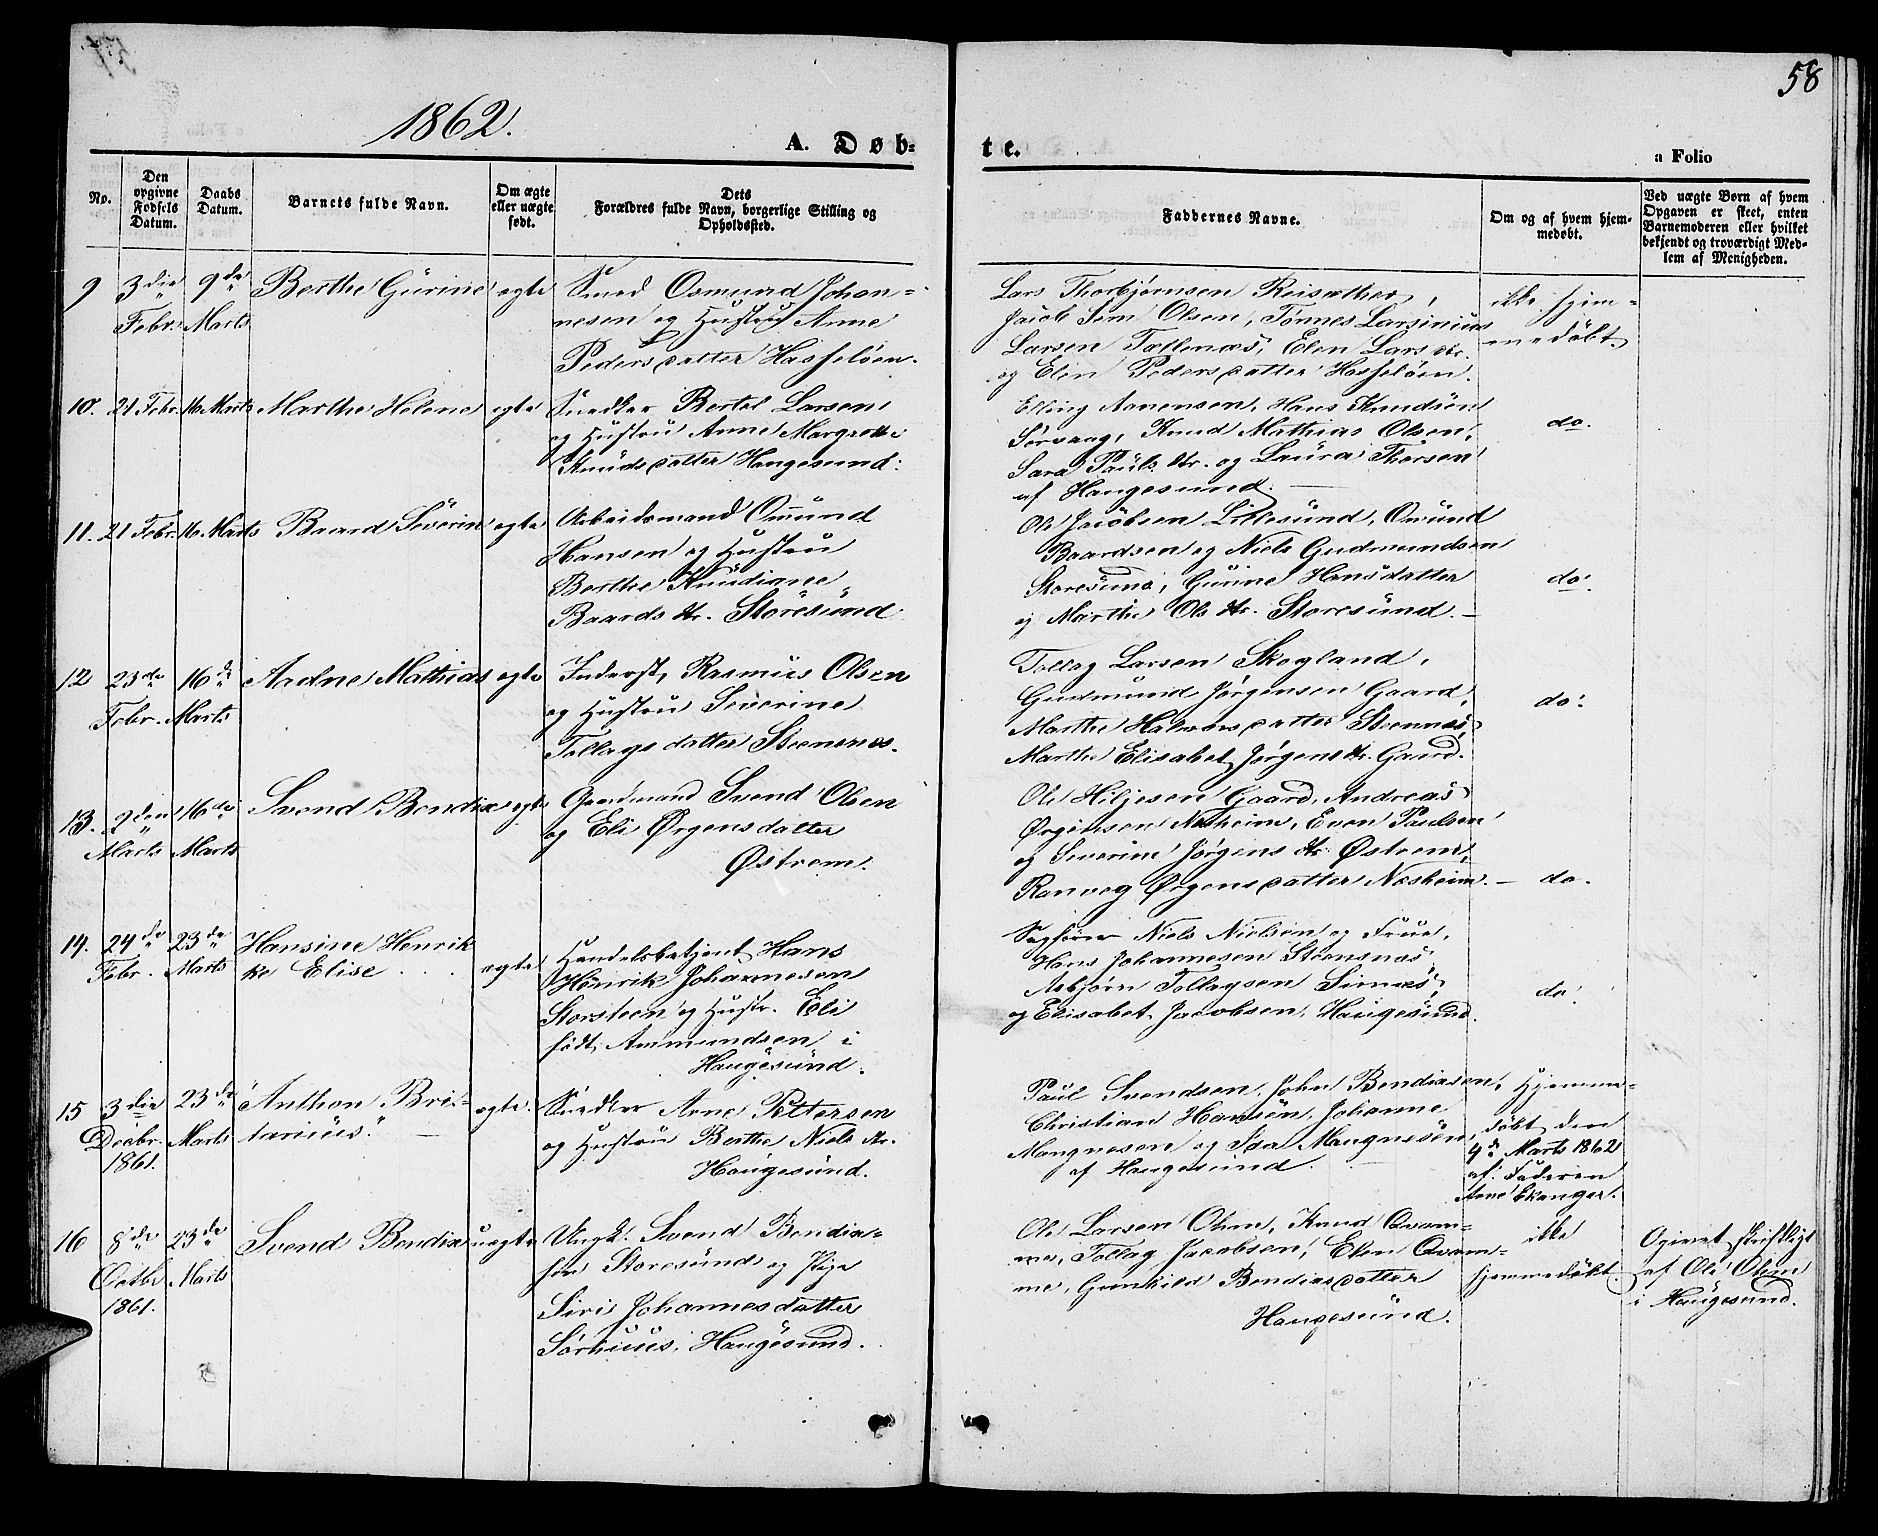 58
1862.
A. Døb-
te.
a Folio
No.
Den
opgivne
Fødsels
Datum.
Daabs
Datum.
Barnets fulde Navn.
Om ægte
eller uægte
født.
Dets
Forældres fulde Navn, borgerlige Stilling og
Opholdssted.
Faddernes Navne.
Om og af hvem hjem-
medøbt.
Ved uægte Børn af hvem
Opgaven er skeet, enten
Barnemoderen eller hvilket
bekjendt og troværdigt Med-
lem af Menigheden.
9
3die
Febr.
9de
Marts
Berthe Gürine
egte
Smed Osmund Johan-
nesen og Hustru Anne
Pedersdatter Hasseløen.
Lars Thorbjørnsen
Jacob Sem Olsen, Tønnes Larsinius
Larsen Tællenæs, Elen Lars dtr.
og Elen Pedersdatter Hasseløen.
ikke hjem-
medøbt.
10.
21 Febr.
16 Marts
Marthe Helene
egte
Snedker Bertel Larsen
og Hustru Anne Margrethe
Knudsdatter Haugesund.
Elling Aanensen, Hans Knudsen
Sørvaag, Knud Mathias Olsen,
Sara Pauls dtr. og Laura Thorsen
af Haugesund.
do.
11.
21 Febr.
16 Marts
Baard Severin
egte
Arbeidsmand Omund
Hansen og Hustru
Berthe Knudiane
Baards dtr. Storesund
Ole Jacobsen Lillesund, Omund
Baardsen og Niels Gudmundsen
Storesund, Gürine Hansdatter
og Marthe Ols dtr. Storesund.
do.
12
23de
Febr.
16de
Marts
Aadne Mathias
egte
Inderst, Rasmus Olsen
og Hustru Severine
Tollagsdatter Steensnes.
Tollag Larsen Skogland,
Gudmund Jørgensen Gaard,
Marthe Halvorsdatter Steensnæs,
Marthe Elisabet Jørgens dtr. Gaard.
do.
13.
2den
Marts
16de
Marts
Svend Bendix
egte
Gaardmand Svend Olsen
og Eli Ørgensdatter
Østrem.
Ole Hiljesen Gaard, Andreas
Ørgensen Nesheim, Even Paulsen
og Severine Jørgens dtr Østrem,
Ranveg Ørgensdatter Næsheim.
do.
14.
24de
Febr.
23de
Marts
Hansine Henrik
ke Elise
egte
Handelsbetjent Hans
Henrik Johannesen
Storsteen og Hustr. Eli
født Ammundsen i
Haugesund.
Sagfører Niels Nielsen og Frue,
Hans Johannesen Steensnæs,
Asbjørn Tollagsen Simnæs,
og Elisabet Jacobsen, Haugesund.
do.
15
3die
Decbr.
1861.
23de
Marts
Anthon Bri-
tarius.
egte.
Snedker Arne Pettersen
og Hustru Berthe Niels dtr.
Haugesund.
Paul Svendsen, John Bendixsen,
Christian Hansen, Johanne
Mangnesen og Ida Mangnesen
af Haugesund.
Hjemme-
døbt den
4de Marts 1862
af Faderen
Arne Ekanger.
16
8de
Octbr
1861.
23de
Marts
Svend Bendix
uegte
Ungk. Svend Bendix-
sen Storesund og Pige
Siri Johannesdatter
Sørhuus, Haugesund.
Ole Larsen Olsen, Knud Qvam-
me, Tollag Jacobsen, Elen Qvam-
me, Gunhild Bendixsdatter
Haugesund.
ikke
hjemmedøbt.
Ogivet skriftligt
af Ole Olsen
i Haugesund.